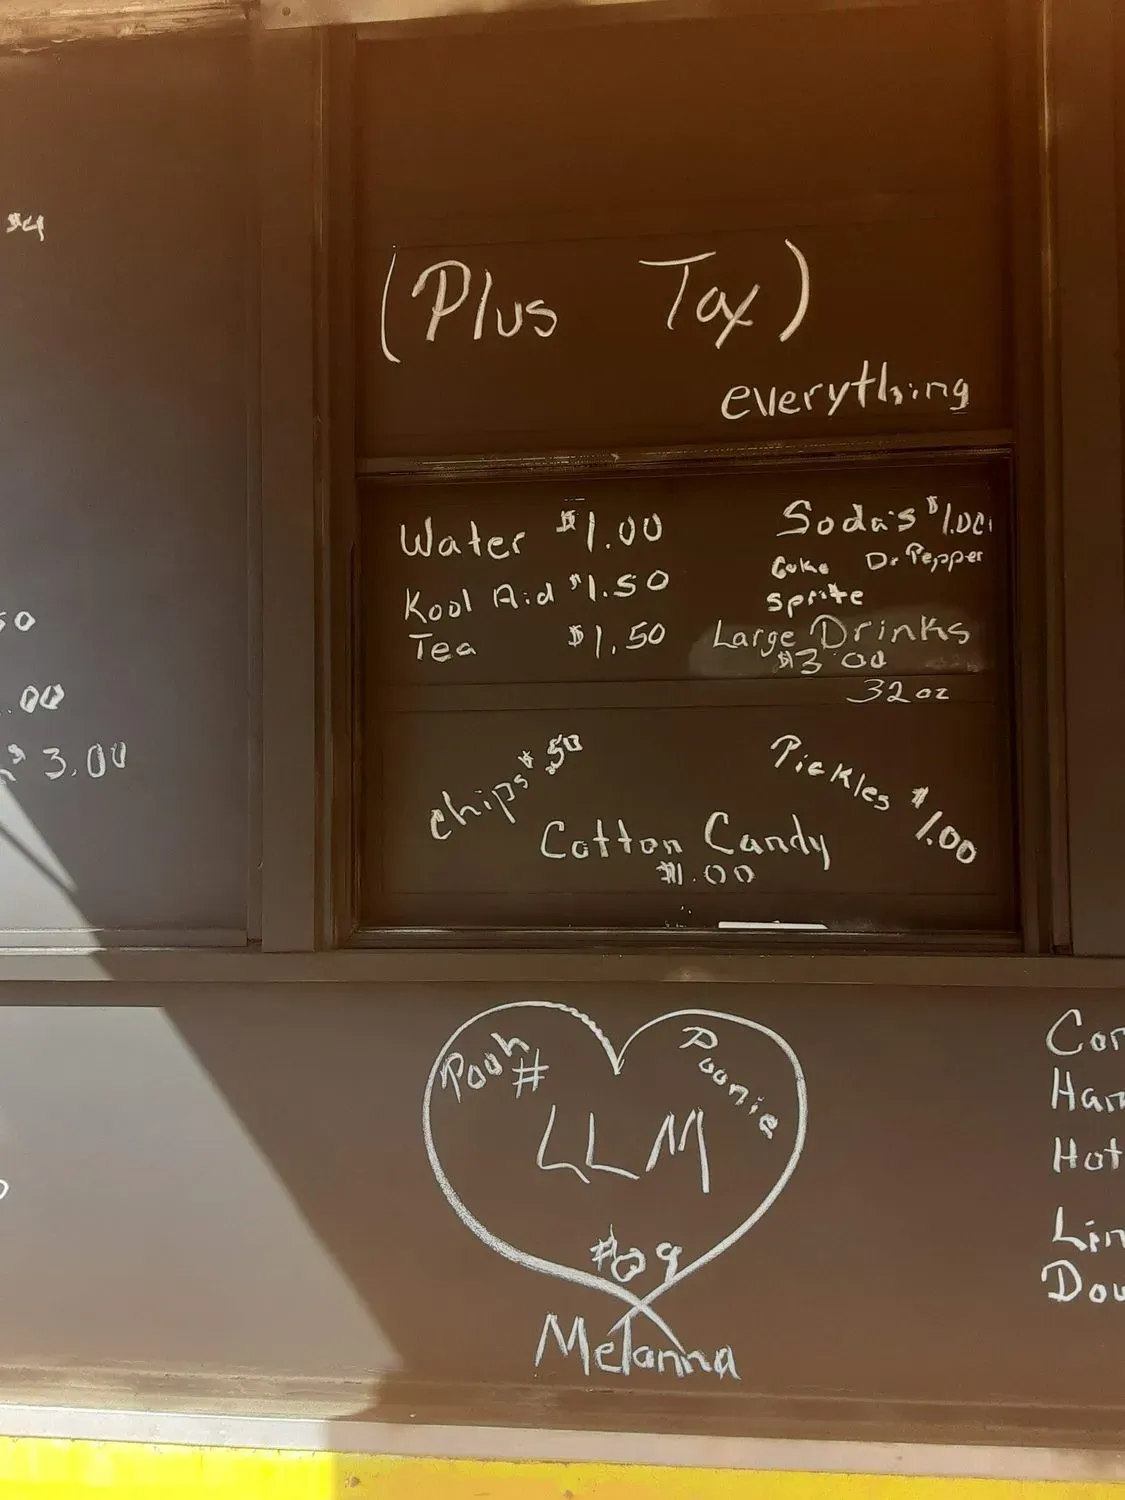 $4
(Plus Tax)
everything
Water $1.00
Kool Aid $1.50
Tea $1.50
Soda's $1.00
Coke Dr Pepper
Sprite
Large Drinks
$3.00
32 oz
50
.00
$3.00
Chips $.50
Pickles $1.00
Cotton Candy
$1.00
Pooh
#
Poonie
LLM
#09
Melanna
Cor
Ham
Hot
Lin
Dou